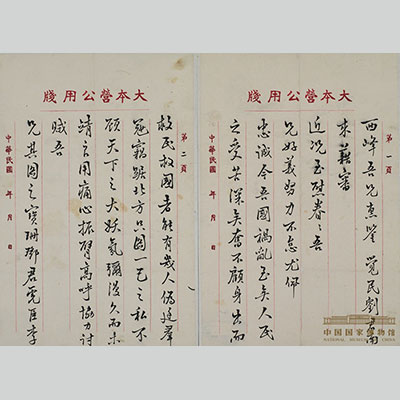 大本營公用牋
第一頁
西峰吾兄惠鑒覺民劉君南
來藉審
近況至慰眷眷吾
兄好義努力不怠尤仰
忠誠今吾國禍亂至矣人民
之受苦深矣奮不顧身出而
中華民國 年 月 日
大本營公用牋
第二頁
救民救國者能有幾人偽廷羣
寇竊踞北方只圖一己之私不
顧天下之大妖氛彌漫久而未
靖言用痛心振臂高呼協力討
賊吾
兄其圖之寶珊鄧君虎臣李
中華民國 年 月 日
中国国家博物馆
NATIONAL MUSEUM OF CHINA